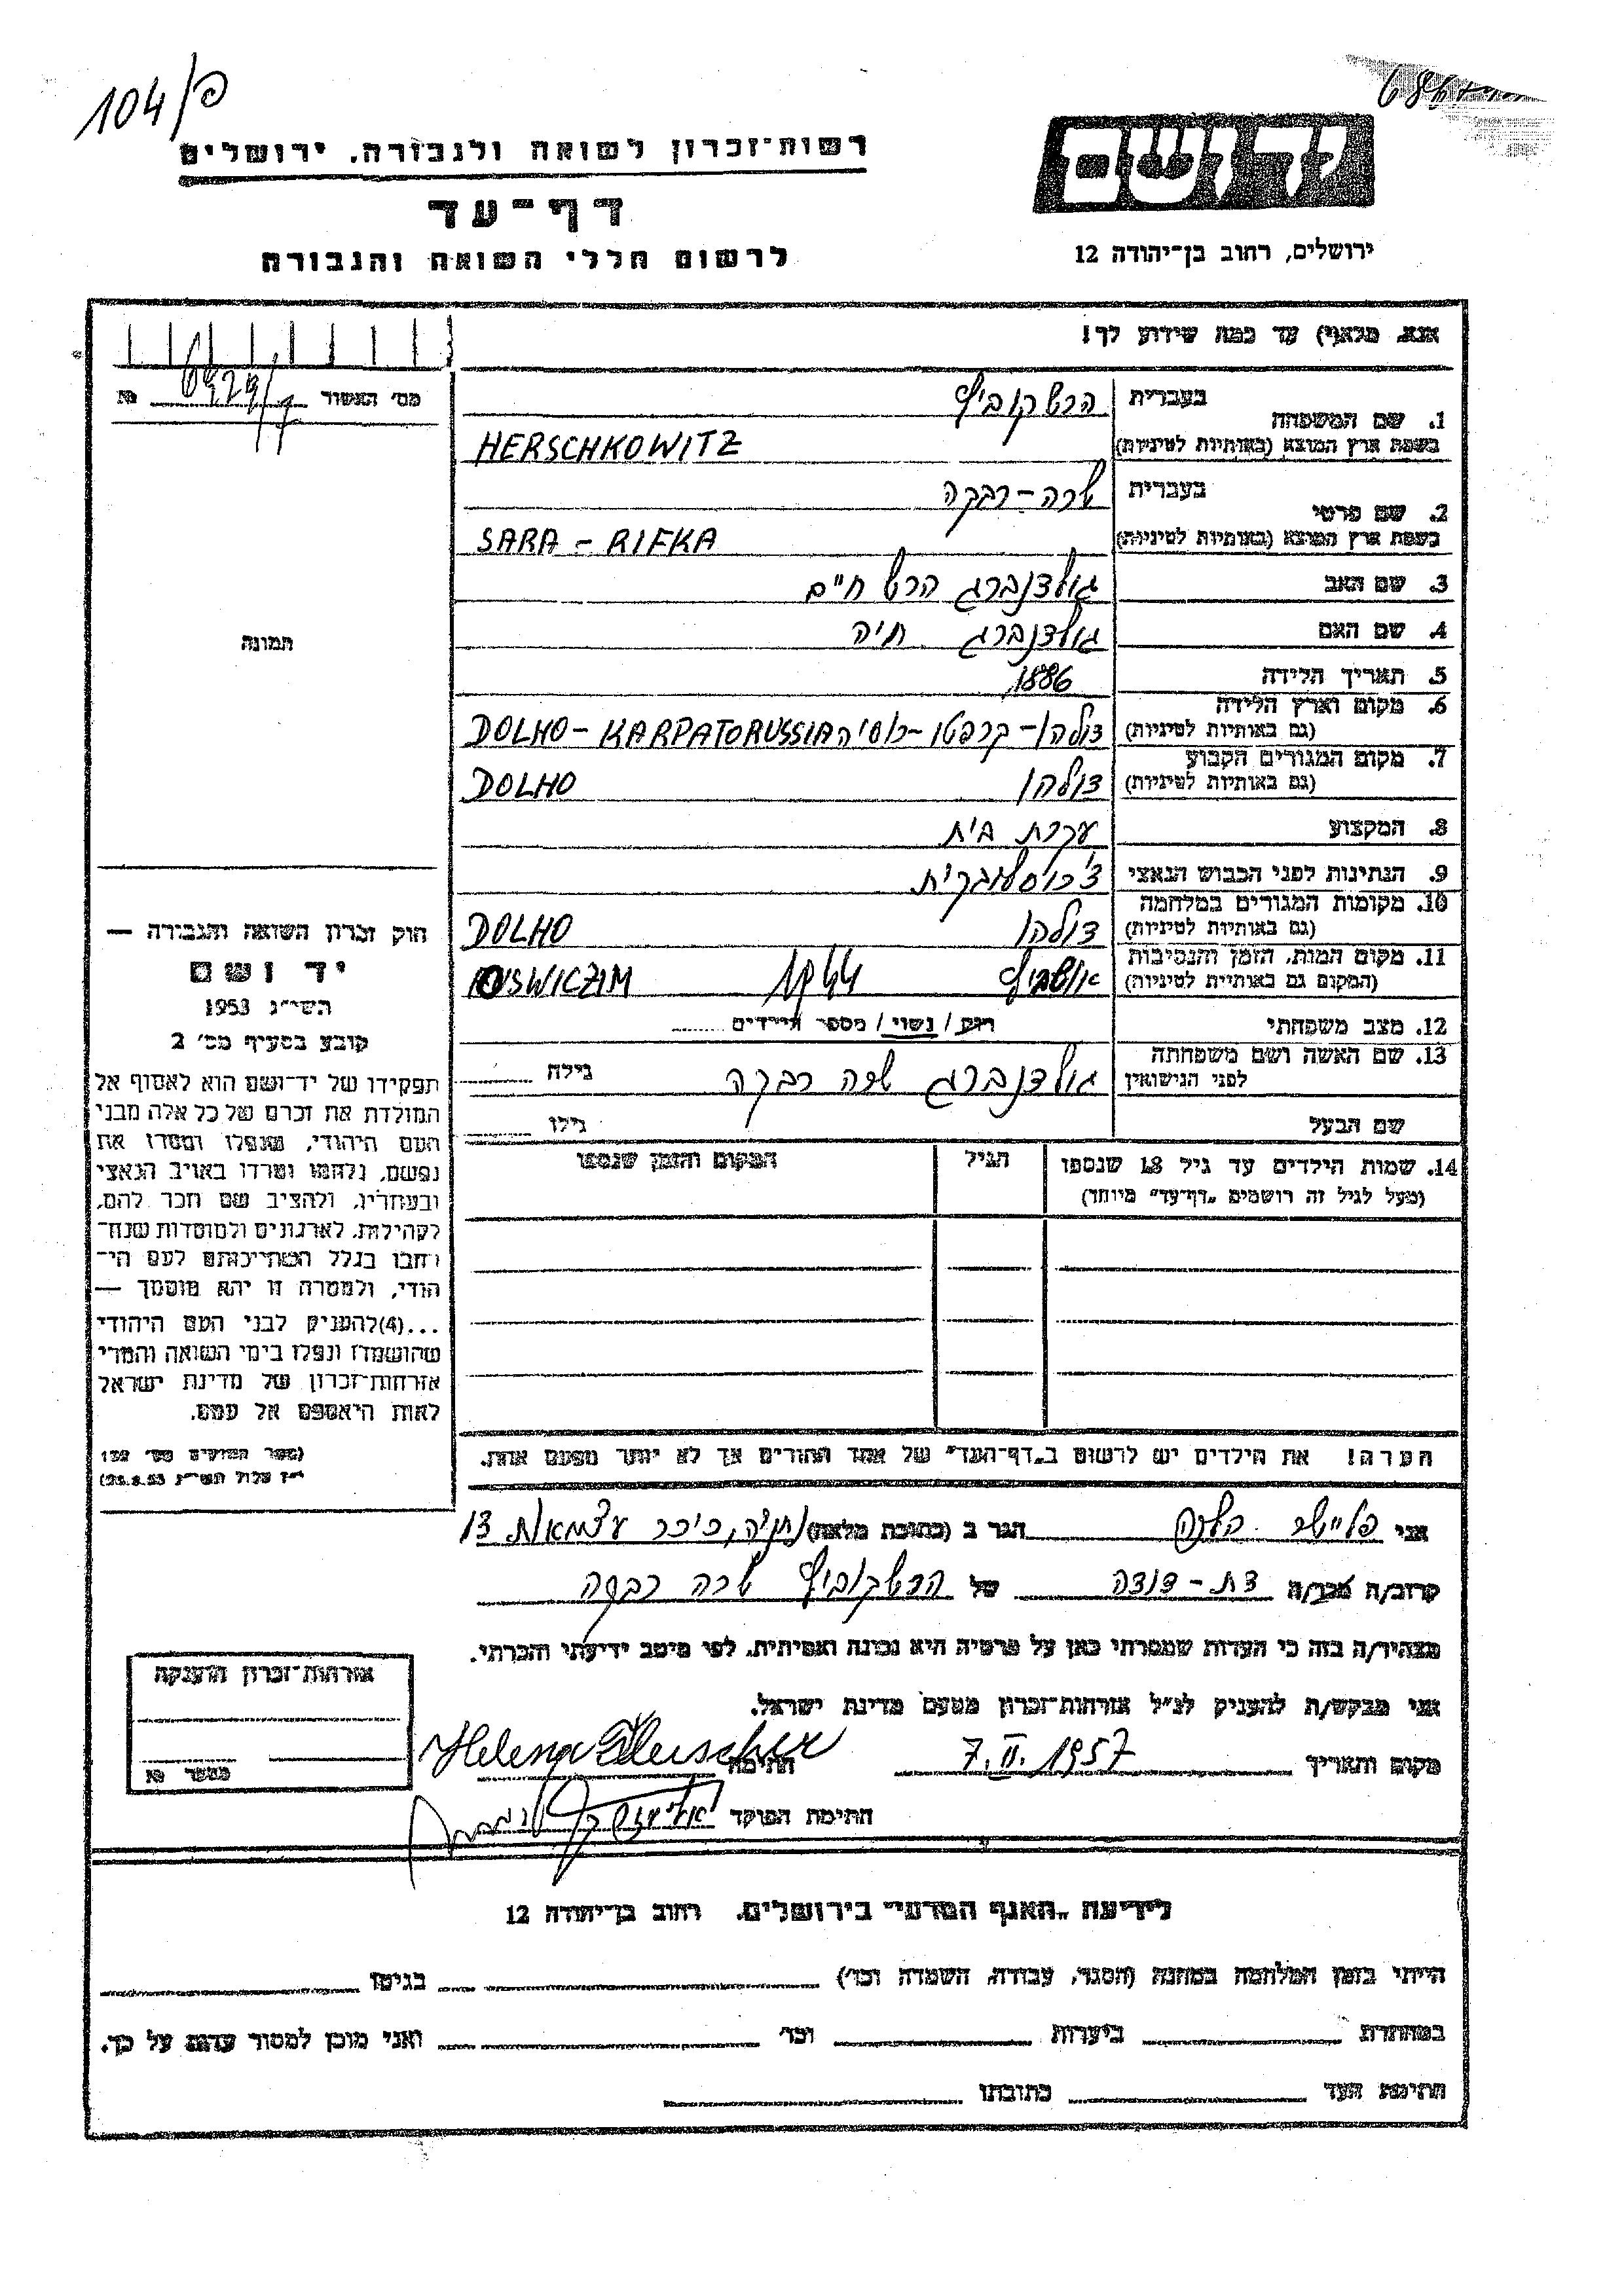 104/פ
רשות־זכרון לשואה ולגבורה, ירושלים
יד ושם
דף־עד
לרשום חללי השואה והגבורה
ירושלים, רחוב בן־יהודה 12
אנא, מלא(י) עד כמה שידוע לך!
מס׳ האשור №
1. שם המשפחה
בעברית הרשקוביץ
בשפת ארץ המוצא (באותיות לטיניות) HERSCHKOWITZ
2. שם פרטי
בעברית שרה-רבקה
בשפת ארץ המוצא (באותיות לטיניות) SARA - RIFKA
3. שם האב גולדנברג הרש חיים
4. שם האם גולדנברג חיה
5. תאריך הלידה 1886
6. מקום וארץ הלידה
(גם באותיות לטיניות) דולהו - קרפטו-רוסיה DOLHO - KARPATORUSSIA
7. מקום המגורים הקבוע
(גם באותיות לטיניות) דולהו DOLHO
8. המקצוע עקרת בית
9. הנתינות לפני הכבוש הנאצי צ׳כוסלובקית
10. מקומות המגורים במלחמה
(גם באותיות לטיניות) דולהו DOLHO
11. מקום המות, הזמן והנסיבות
(המקום גם באותיות לטיניות) אושביץ 1944 OSWICZIM
12. מצב משפחתי רווק / נשוי / מספר הילדים
13. שם האשה ושם משפחתה
לפני הנישואין גולדנברג שרה רבקה גילה
שם הבעל גילו
14. שמות הילדים עד גיל 18 שנספו
(מעל לגיל זה רושמים „דף־עד” מיוחד)
הגיל
המקום והזמן שנספו
הערה! את הילדים יש לרשום ב„דף־העד” של אחד ההורים אך לא יותר מפעם אחת.
תמונה
חוק זכרון השואה והגבורה —
יד ושם
תשי״ג 1953
קובע בסעיף מס׳ 2
תפקידו של יד־ושם הוא לאסוף אל
המולדת את זכרם של כל אלה מבני
העם היהודי, שנפלו ומסרו את
נפשם, נלחמו ומרדו באויב הנאצי
ובעוזריו, ולהציב שם וזכר להם,
לקהילות, לארגונים ולמוסדות שנח־
רבו בגלל השתייכותם לעם הי־
הודי, ולמטרה זו יהא מוסמך —
...(4)להעניק לבני העם היהודי
שהושמדו ונפלו בימי השואה והמרי
אזרחות־זכרון של מדינת ישראל
לאות היאספם אל עמם.
(ספר החוקים מס׳ 132
י״ז אלול תשי״ג 28.8.53)
אני פליישר הלנה הגר ב (כתובת מלאה) נתניה, כיכר עצמאות 13
קרוב/ה מכר/ה בת-דודה של הרשקוביץ שרה רבקה
מצהיר/ה בזה כי העדות שמסרתי כאן על פרטיה היא נכונה ואמיתית, לפי מיטב ידיעתי והכרתי.
אני מבקש/ת להעניק לנ״ל אזרחות־זכרון מטעם מדינת ישראל.
מקום ותאריך 7.II.1957 חתימה Helena Fleischer
חתימת הפוקד
אזרחות־זכרון הוענקה
מספר №
לידיעת „האגף המדעי” בירושלים, רחוב בן־יהודה 12
הייתי בזמן המלחמה במחנה (הסגר, עבודה, השמדה וכו׳) בגיטו
במחתרת ביערות וכו׳ ואני מוכן למסור עדות על כך.
חתימת העד כתובתו